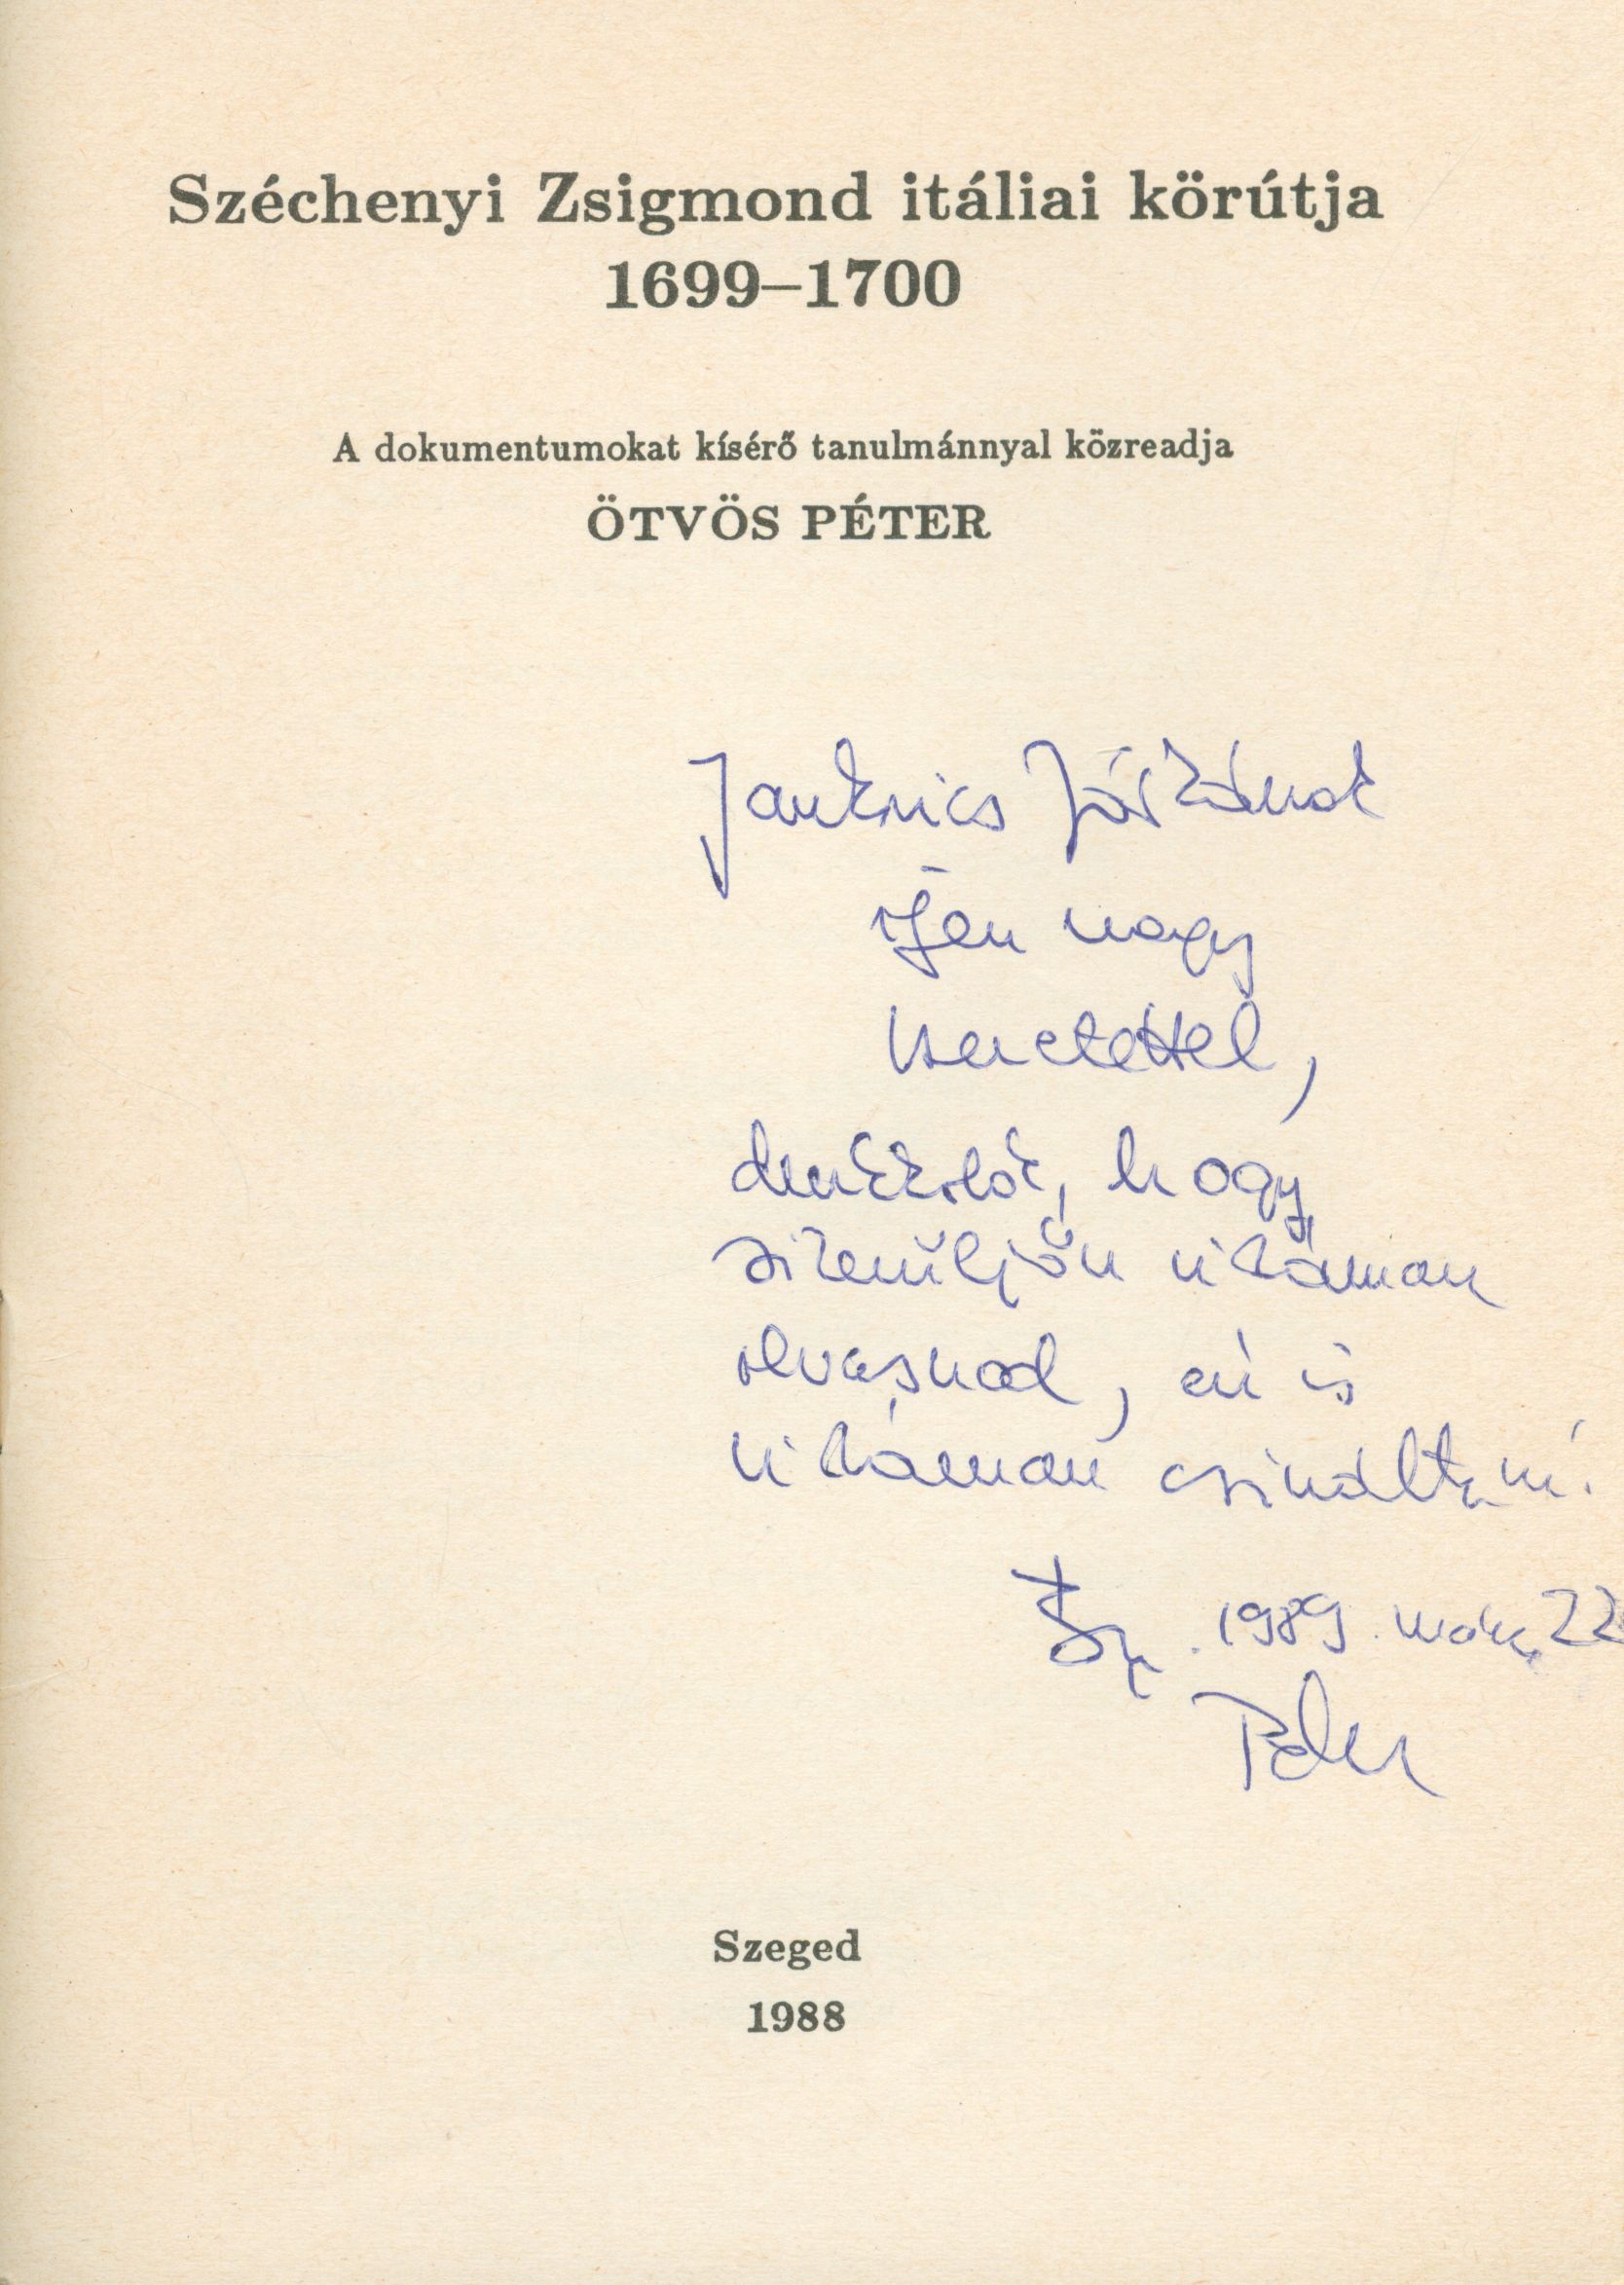 Széchenyi Zsigmond itáliai körútja
1699–1700
A dokumentumokat kísérő tanulmánnyal közreadja
ÖTVÖS PÉTER
Jankovics Józsának
igen nagy
szeretettel,
drukkolok, hogy
sikerüljön vidáman
olvasnod, én is
vidáman csináltam.
Sz. 1989. márc. 22
Péter
Szeged
1988